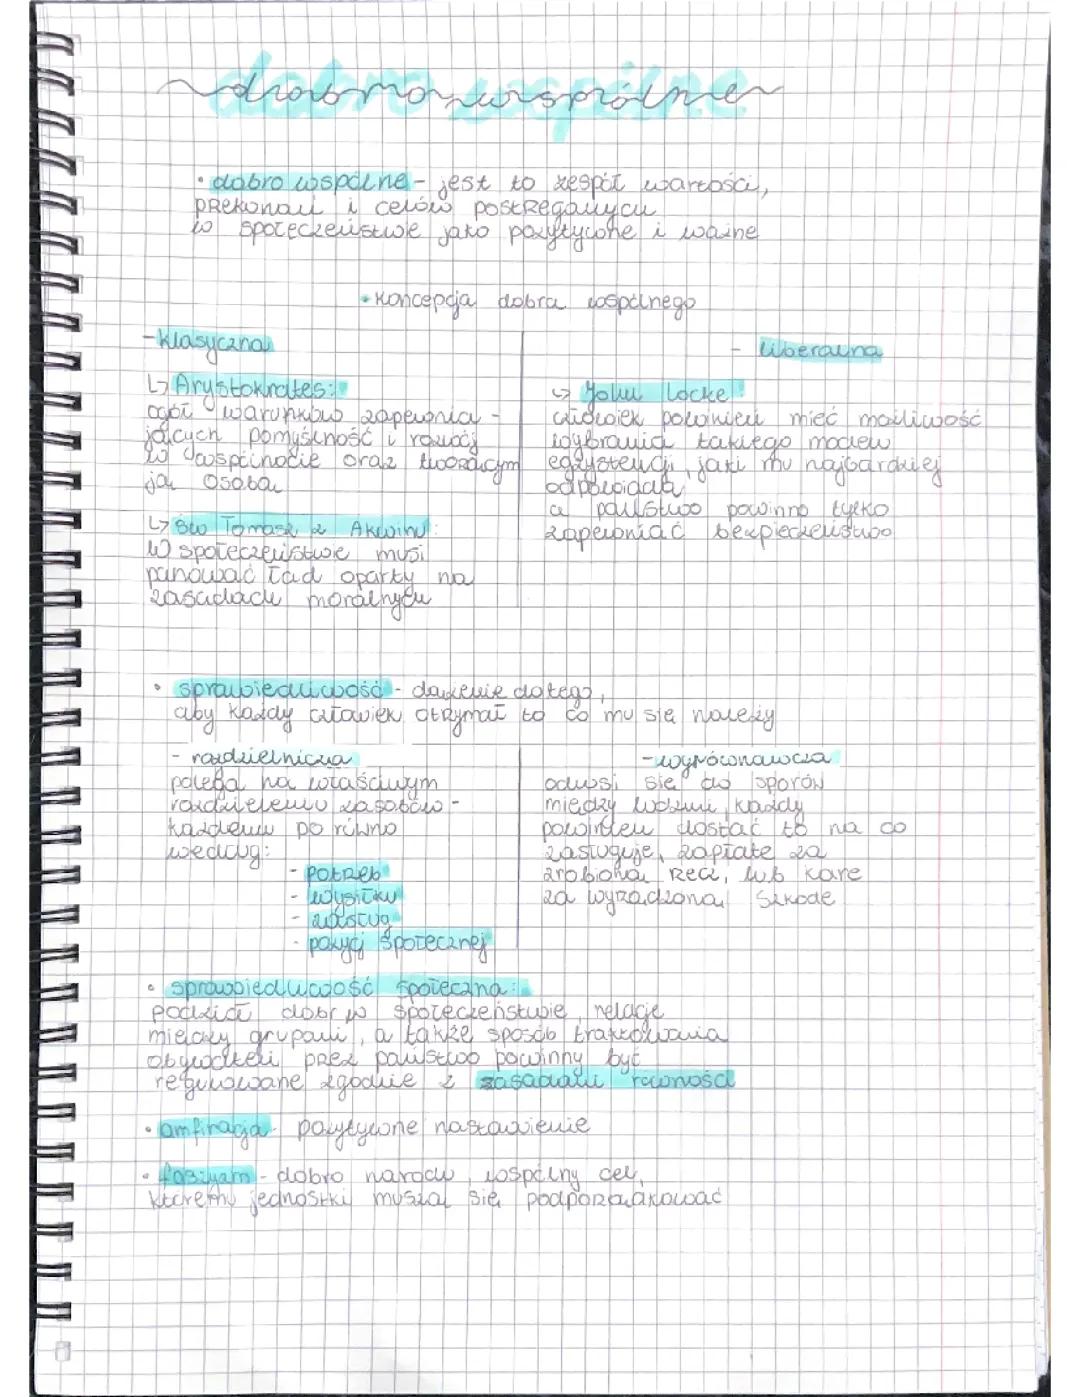 dobro wspólne
• dobro wspólne - jest to zespół wartości,
przekonań i celów postrzeganych
w społeczeństwie jako pozytywne i ważne
• koncepcja dobra wspólnego
- klasyczna
↳ Arystokrates:
ogół warunków zapewnia -
jących pomyślność i rozwój
w wspólnocie oraz tworzącym
ją osobą
↳ św Tomasz z Akwinu:
w społeczeństwie musi
panować ład oparty na
zasadach moralnych
- liberalna
↳ John Locke:
człowiek powinien mieć możliwość
wybrania takiego modelu
egzystencji, jaki mu najbardziej
odpowiada
a państwo powinno tylko
zapewniać bezpieczeństwo
• sprawiedliwość - dążenie do tego,
aby każdy człowiek otrzymał to co mu się należy
- rozdzielnicza
polega na właściwym
rozdzieleniu zasobów -
każdemu po równo
według:
- potrzeb
- wysiłku
- zasług
- pozycji społecznej
- wyrównawcza
odnosi się do sporów
między ludźmi, każdy
powinien dostać to na co
zasługuje, zapłatę za
zrobioną rzecz, lub karę
za wyrządzoną szkodę
• sprawiedliwość społeczna:
podział dóbr w społeczeństwie, relacje
między grupami, a także sposób traktowania
obywateli przez państwo powinny być
regulowane zgodnie z zasadami równości
• amfiracja - pozytywne nastawienie
• faszyzm - dobro narodu, wspólny cel,
któremu jednostki muszą się podporządkować